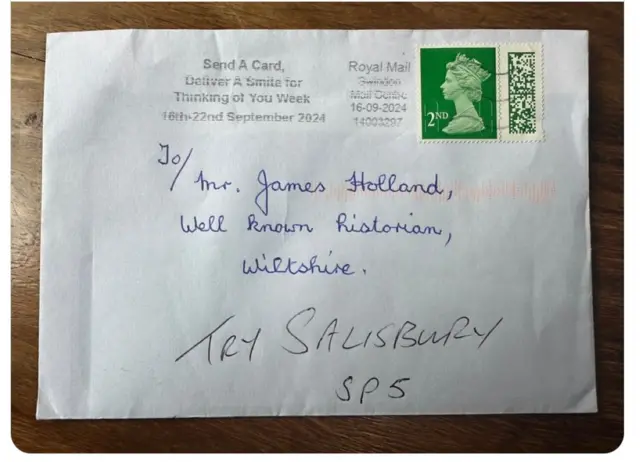 Send A Card,
Deliver A Smile for
Thinking of You Week
16th-22nd September 2024
Royal Mail
Swindon
Mail Centre
16-09-2024
14003297
2ND
To/
Mr. James Holland,
Well known historian,
Wiltshire.
TRY SALISBURY
SP5